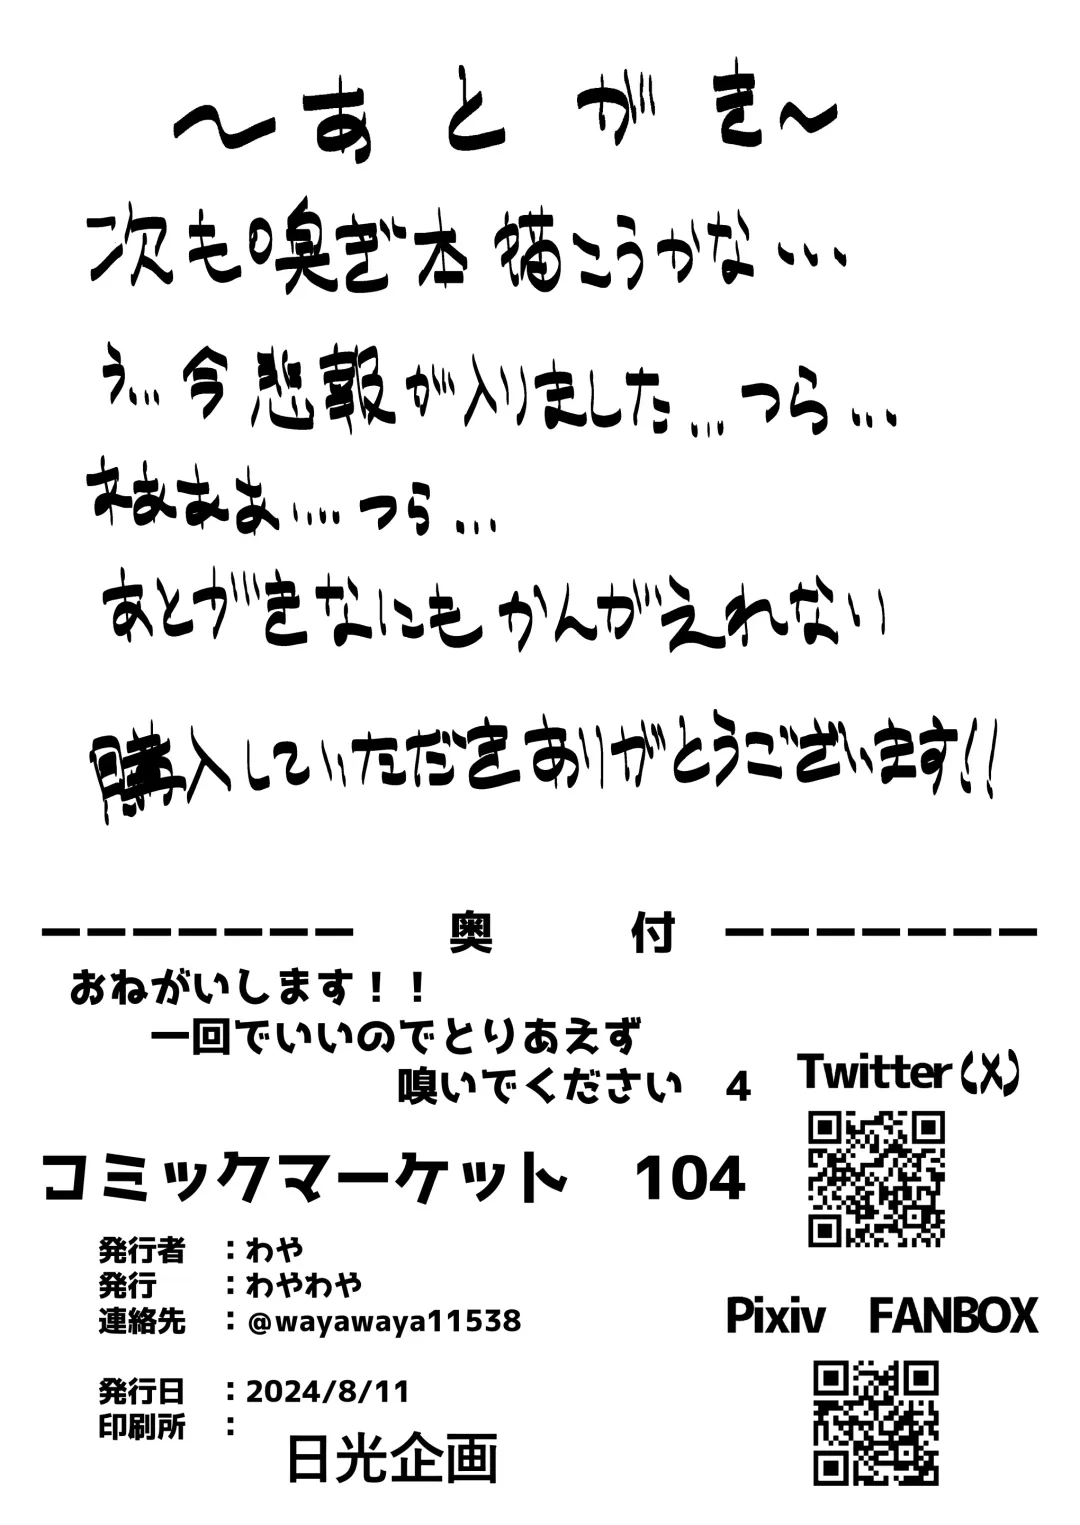 ～あとがき～
次も嗅ぎ本描こうかな...
う...今悲報が入りました...つら...
まぁぁぁ....つら...
あとがきなにもかんがえれない
購入していただきありがとうございます!!
ーーーーーーー 奥 付 ーーーーーーー
おねがいします！！
一回でいいのでとりあえず
嗅いでください 4
Twitter(X)
コミックマーケット 104
発行者 ：わや
発行 ：わやわや
連絡先 ：@wayawaya11538
Pixiv FANBOX
発行日 ：2024/8/11
印刷所 ：
日光企画